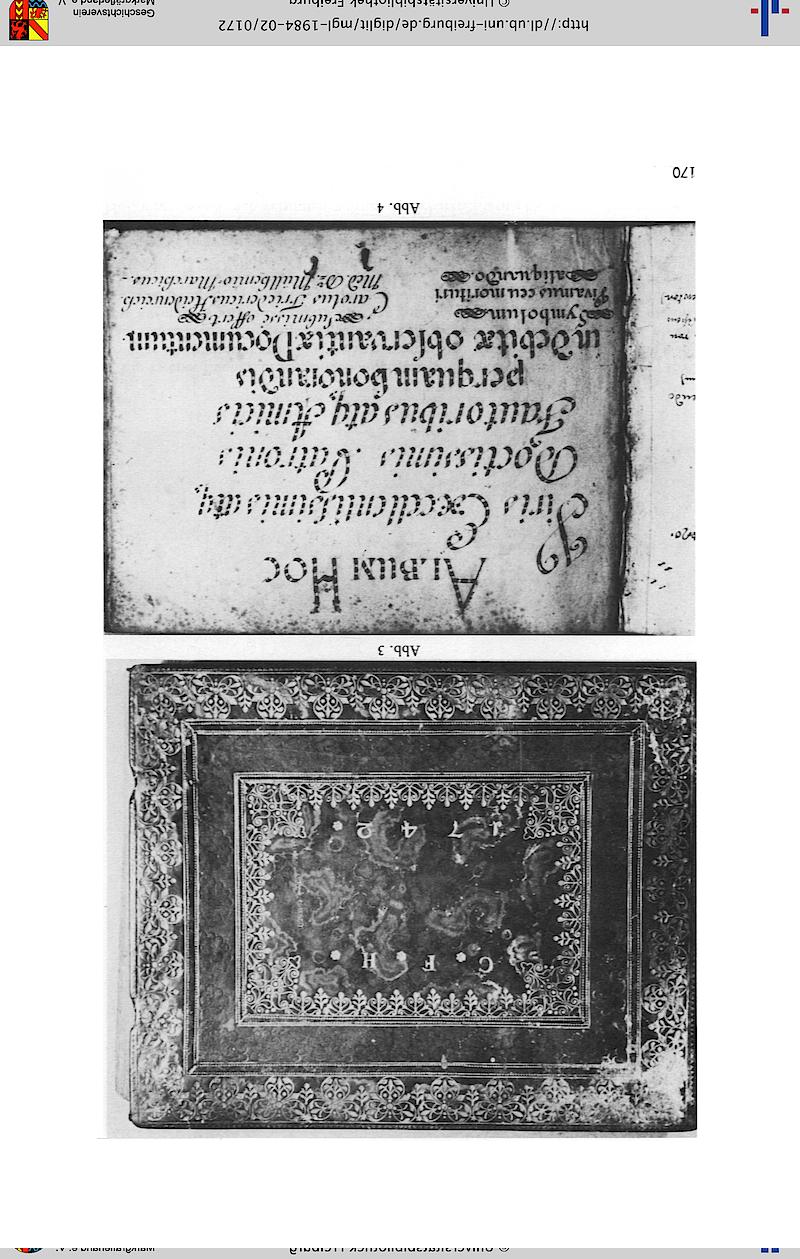 © Universitätsbibliothek Freiburg
Markgräflerland e. V.
C * F * H *
1 7 4 2 *
Abb. 3
ALBUM HOC
Viris Excellentiſsimis atq
Doctissimis Patronis
Fautoribus atq Amicis
perquam honorandis
in debitæ obſervantiæ Documentum
Symbolum. submisse offert
Vivamus ceu morituri Carolus Fridericus Heidenreich
aliquando. Müllhemio-Marchicus.
Abb. 4
170
http://dl.ub.uni-freiburg.de/diglit/mgl-1984-02/0172
© Universitätsbibliothek Freiburg
Geschichtsverein
Markgräflerland e. V.